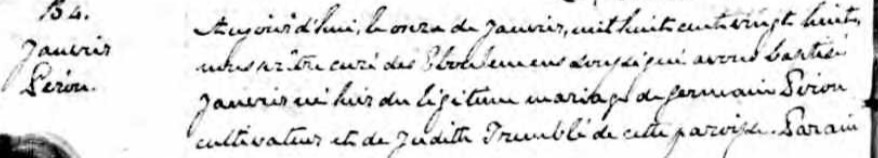 B4.
Janvrin
Perron.
Aujourd'hui, le onze de Janvier, mil huit cent vingt huit,
nous prêtre curé des Eboulemens soussigné avons baptisé
né hier du légitime mariage de Germain
cultivateur et de Judith Tremblé de cette paroisse. Parain